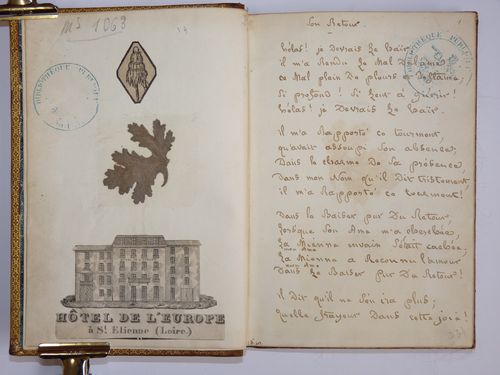 Ms 1063
BIBLIOTHÈQUE PUBLIQUE
HÔTEL DE L'EUROPE
à St. Etienne (Loire.)
Son Retour.
BIBLIOTHÈQUE PUBLIQUE
hélas! je Devrais Le haïr
il m'a Rendu Le Mal De l'âme,
Ce Mal plein De pleurs et De flâme;
Si profond! Si Lent à guérir!
hélas! je Devrais Le haïr.
il m'a Rapporté ce tourment
qu'avait assoupi Son absence,
Dans Le charme De Sa présence
Dans mon Nom qu'il Dit tristement,
il m'a Rapporté ce tourment!
Dans Le Baiser pur Du Retour,
Lorsque Son Ame m'a cherchée,
La Mienne envain S'était cachée;
mon Ame
La Mienne a Reconnu l'amour
Dans Le Baiser pur Du Retour!
il Dit qu'il ne S'en ira plus;
quelle frayeur Dans cette joie!